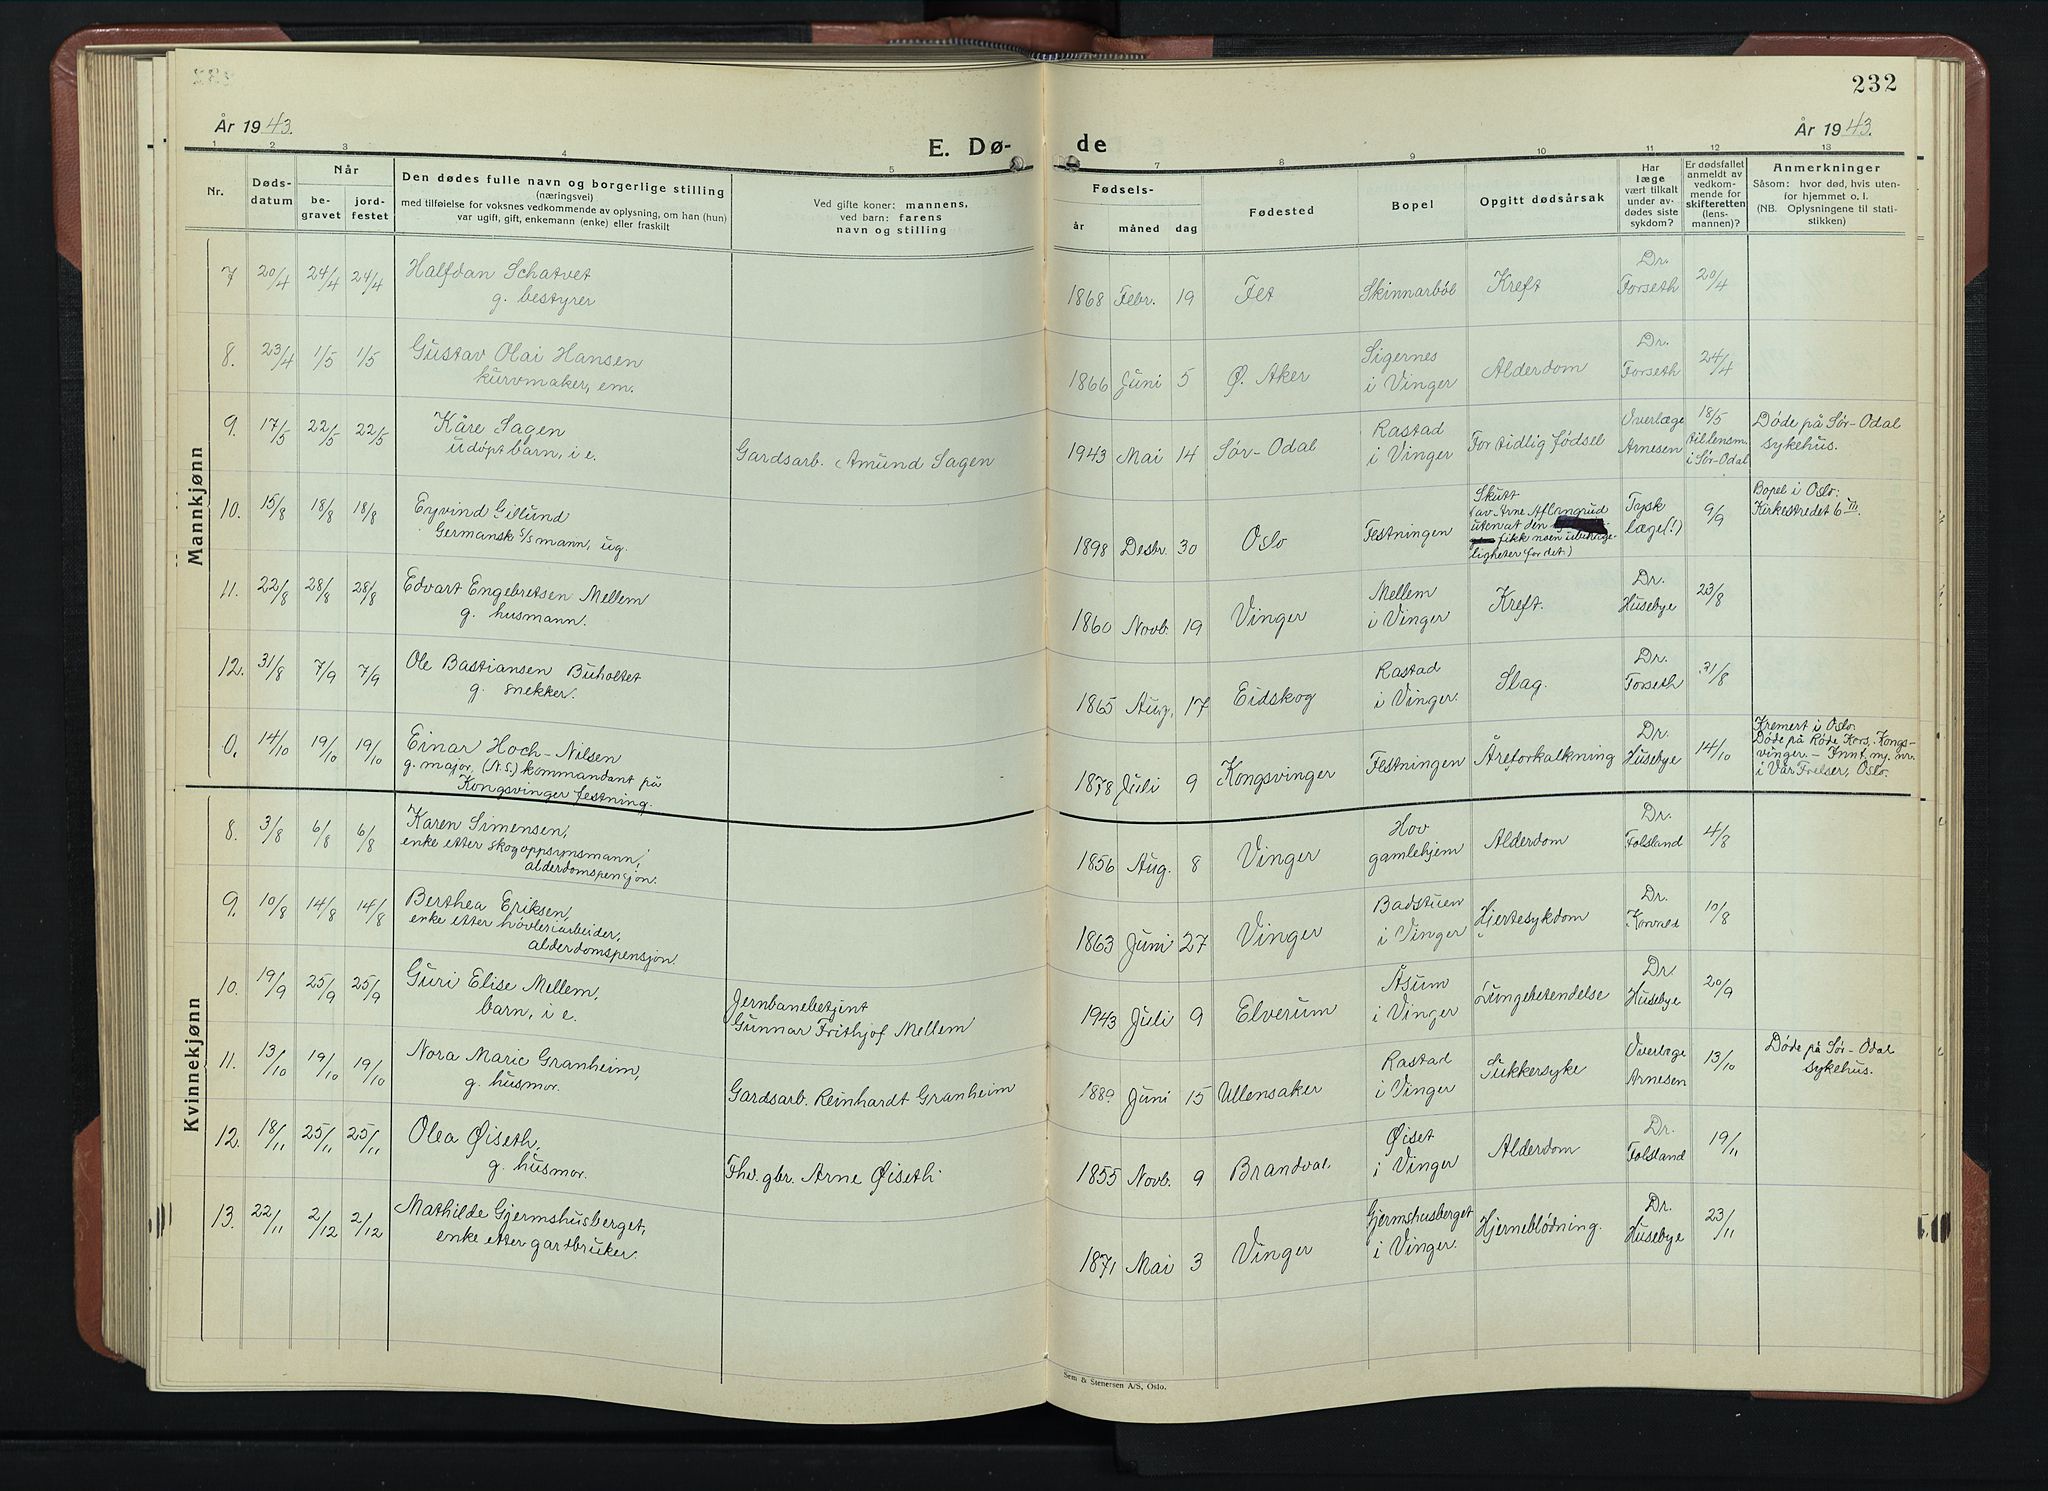 232
År 1943.
År 1943.
E. Dø-
de
1 2 3 4 5
7 8 9 10 11 12 13
Nr.
Døds-
datum
Når
be-
gravet
jord-
festet
Den dødes fulle navn og borgerlige stilling
(næringsvei)
med tilføielse for voksnes vedkommende av oplysning, om han (hun)
var ugift, gift, enkemann (enke) eller fraskilt
Ved gifte koner: mannens,
ved barn: farens
navn og stilling
Fødsels-
år måned dag
Fødested
Bopel
Opgitt dødsårsak
Har
læge
vært tilkalt
under av-
dødes siste
sykdom?
Er dødsfallet
anmeldt av
vedkom-
mende for
skifteretten
(lens-
mannen)?
Anmerkninger
Såsom: hvor død, hvis uten-
for hjemmet o. l.
(NB. Oplysningene til stati-
stikken)
Mannkjønn
7 20/4 24/4 24/4 Halfdan Schatvet
g. bestyrer
1868 Febr. 19 Fet Skinnarbøl Kreft
Dr.
Forseth
20/4
8. 23/4 1/5 1/5 Gustav Olai Hansen
kurvmaker, em.
1866 Juni 5 Ø. Aker
Sigernes
i Vinger
Alderdom
Dr.
Forseth
24/4
9. 17/5 22/5 22/5 Kåre Sagen
udøpt barn, i e.
Gardsarb. Amund Sagen
1943 Mai 14 Sør-Odal
Rastad
i Vinger
For tidlig fødsel
Overlæge
Arnesen
18/5
til lensm.
i Sør-Odal
Døde på Sør-Odal
sykehus.
10. 15/8 18/8 18/8 Eyvind Gillund
Germansk s/s mann, ug.
1898 Desbr. 30 Oslo Festningen
Skutt
(av Arne Aflangrud
uten at den
fikk noen ubehage-
ligheter for det.)
Tysk
læge(!)
9/9
Bopel i Oslo:
Kirkestredet 6 III.
11. 22/8 28/8 28/8 Edvart Engebretsen Mellem
g. husmann.
1860 Novb. 19 Vinger
Mellem
i Vinger
Kreft.
Dr.
Husebye
23/8
12. 31/8 7/9 7/9 Ole Bastiansen Buholtet
g. snekker.
1865 Aug. 17 Eidskog
Rastad
i Vinger.
Slag.
Dr.
Forseth
31/8
0. 14/10 19/10 19/10 Einar Hoch-Nilsen
g. major, (N.S.) kommandant på
Kongsvinger festning.
1878 Juli 9 Kongsvinger Festningen Åreforkalkning
Dr.
Husebye
14/10
Kremert i Oslo
Døde på Røde Kors, Kongs-
vinger. – Innt. ny. nr.
i Vår Frelser, Oslo.
Kvinnekjønn
8. 3/8 6/8 6/8 Karen Simensen,
enke etter skogoppsynsmann,
alderdomspensjon.
1856 Aug. 8 Vinger
Hov
gamlehjem
Alderdom
Dr.
Folsland
4/8
9. 10/8 14/8 14/8 Berthea Eriksen,
enke etter høvleriarbeider,
alderdomspensjon.
1863 Juni 27 Vinger
Badstuen
i Vinger
Hjertesykdom
Dr.
Korvald
10/8
10. 19/9 25/9 25/9 Guri Elise Mellem,
barn, i e.
Jernbanebetjent
Gunnar Frithjof Mellem
1943 Juli 9 Elverum
Åsum
i Vinger
Lungebetendelse
Dr.
Husebye
20/9
11. 13/10 19/10 19/10 Nora Marie Granheim,
g. husmor.
Gardsarb. Reinhardt Granheim
1889 Juni 15 Ullensaker
Rastad
i Vinger
Sukkersyke
Overlæge
Arnesen
13/10
Døde på Sør-Odal
sykehus.
12. 18/11 25/11 25/11 Olea Øiseth,
g. husmor.
Fhv. gbr. Arne Øiseth
1855 Novb. 9 Brandval
Øiset
i Vinger
Alderdom
Dr.
Folsland
19/11
13. 22/11 2/12 2/12 Mathilde Gjermshusberget,
enke etter gardbruker.
1871 Mai 3 Vinger
Gjermshusberget
i Vinger.
Hjerneblødning.
Dr.
Husebye
23/11
Sem & Stenersen A/S, Oslo.